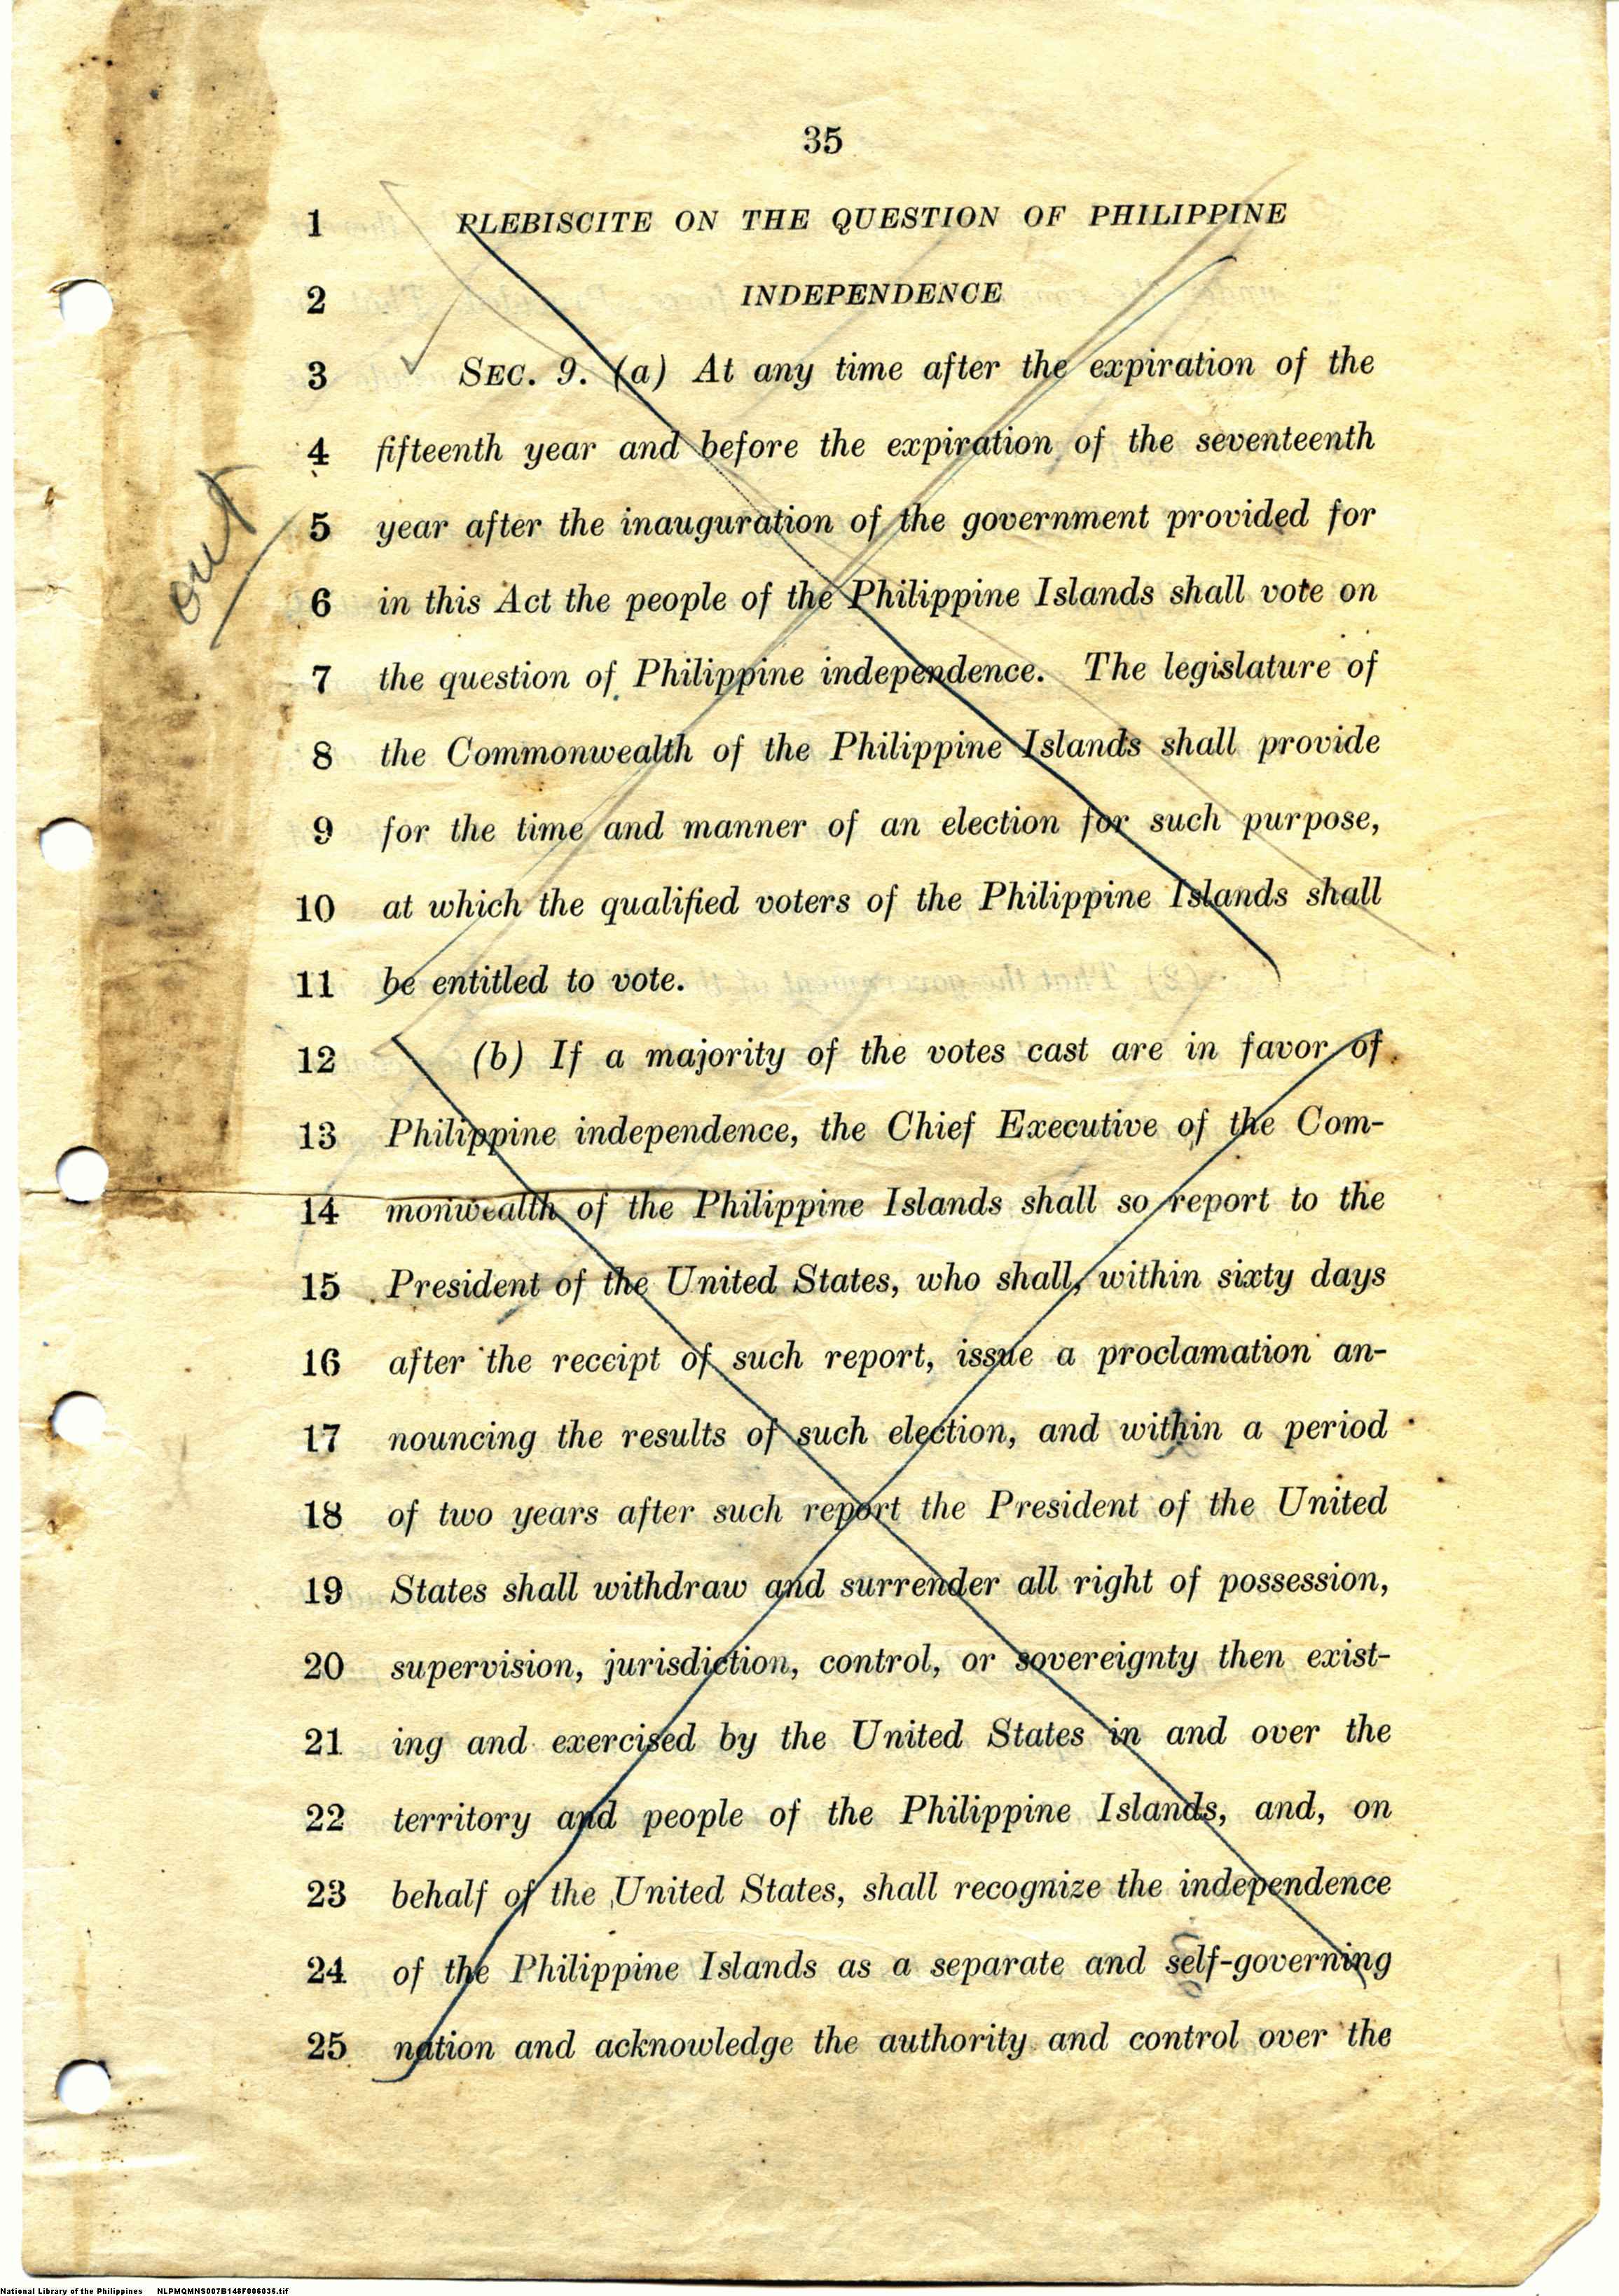 35
1 PLEBISCITE ON THE QUESTION OF PHILIPPINE
2 INDEPENDENCE
3 SEC. 9. (a) At any time after the expiration of the
4 fifteenth year and before the expiration of the seventeenth
5 year after the inauguration of the government provided for
6 in this Act the people of the Philippine Islands shall vote on
7 the question of Philippine independence. The legislature of
8 the Commonwealth of the Philippine Islands shall provide
9 for the time and manner of an election for such purpose,
10 at which the qualified voters of the Philippine Islands shall
11 be entitled to vote.
12 (b) If a majority of the votes cast are in favor of
13 Philippine independence, the Chief Executive of the Com-
14 monwealth of the Philippine Islands shall so report to the
15 President of the United States, who shall, within sixty days
16 after the receipt of such report, issue a proclamation an-
17 nouncing the results of such election, and within a period
18 of two years after such report the President of the United
19 States shall withdraw and surrender all right of possession,
20 supervision, jurisdiction, control, or sovereignty then exist-
21 ing and exercised by the United States in and over the
22 territory and people of the Philippine Islands, and, on
23 behalf of the United States, shall recognize the independence
24 of the Philippine Islands as a separate and self-governing
25 nation and acknowledge the authority and control over the
out
National Library of the Philippines NLPMQMNS007B148F006035.tif